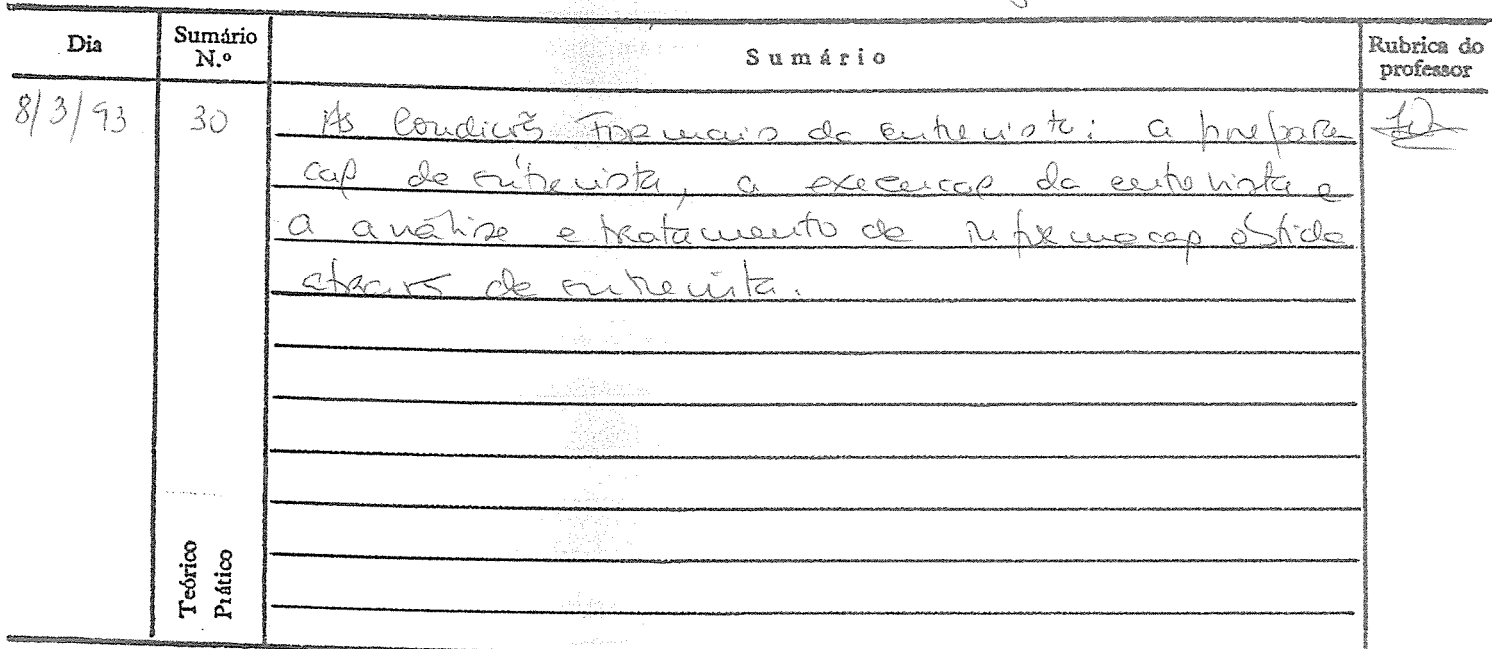 Dia
Sumário N.º
Sumário
Rubrica do professor
8/3/93
30
As Condições Formais da entrevista: a prepara
ção da entrevista, a execução da entrevista e
a análise e tratamento de informação obtida
através de entrevista.
Teórico
Prático